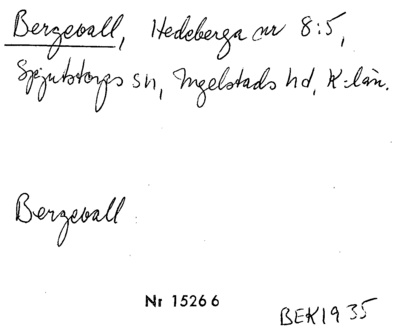 Bergevall, Hedeberga nr 8:5,
Spjutstorps sn, Ingelstads hd, K-län.
Bergevall
Nr 15266
BEK 1935